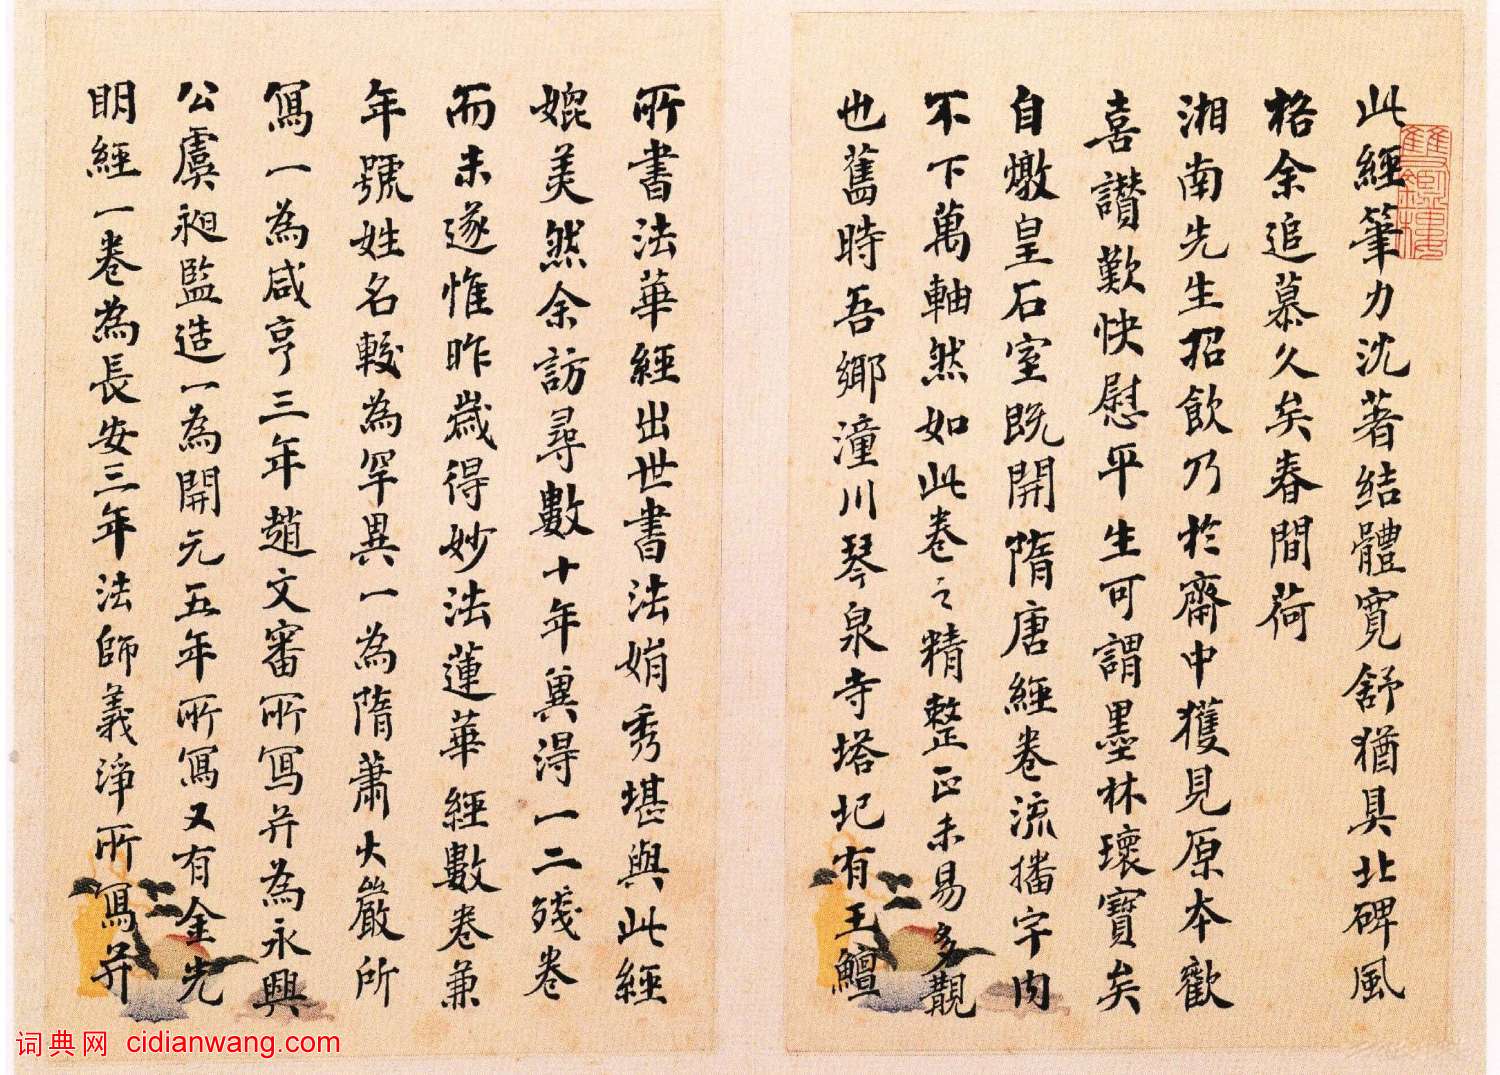 此經筆力沈著結體寬舒猶具北碑風
格余追慕久矣春間荷
湘南先生招飲乃於齋中獲見原本歡
喜讚歎快慰平生可謂墨林瓌寶矣
自燉皇石室既開隋唐經卷流播宇内
不下萬軸然如此卷之精整正未易多覯
也舊時吾鄉潼川琴泉寺塔圮有王鱣
所書法華經出世書法娟秀堪與此經
媲美然余訪尋數十年異得一二殘卷
而未遂惟昨歲得妙法蓮華經數卷兼
年號姓名較為罕異一為隋蕭大嚴所
寫一為咸亨三年趙文審所寫并為永興
公虞昶監造一為開元五年所寫又有金光
明經一卷為長安三年法師義淨所寫并
雙鑑樓
词典网 cidianwang.com